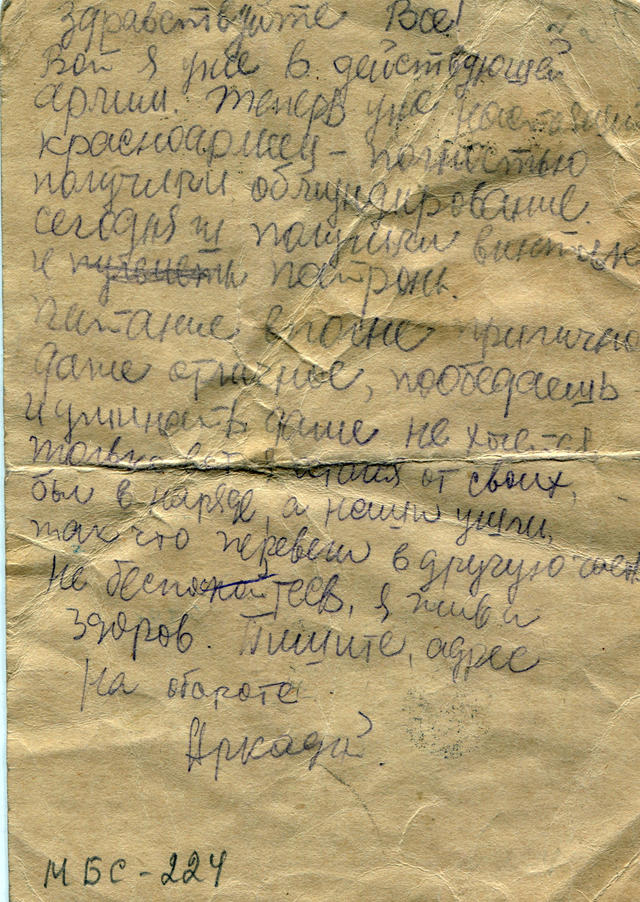 Здравствуйте Все!
Вот я уже в действующей
армии. Теперь уже настоящий
красноармеец - полностью
получили обмундирование.
сегодня получили винтовк
и патроны.
Питание вполне прилично
даже отличное, пообедаешь
и ужинать даже не хочется
только вот отстал от своих,
был в наряде, а наши ушли,
так что перевели в другую
не беспокойтесь, я жив и
здоров. Пишите, адрес
на обороте
Аркадий
МБС-224